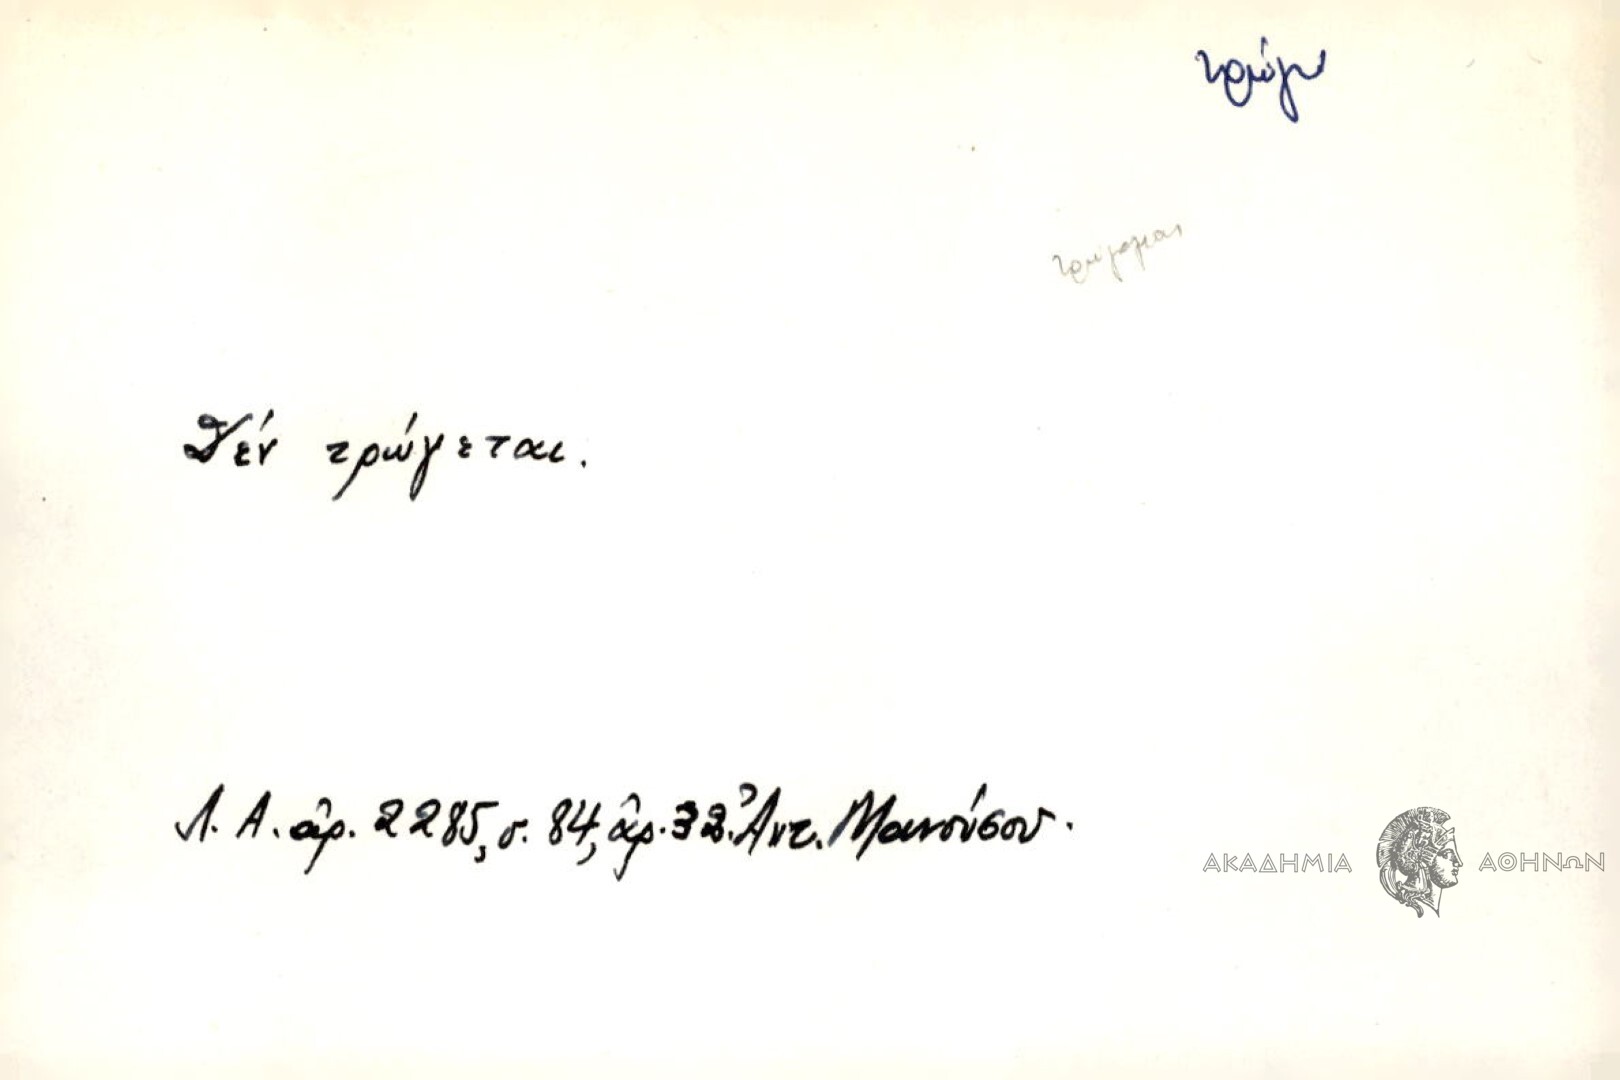 τρώγω
Δέν τρώγεται.
Λ. Α. ἀρ. 2285, σ. 84, ἀρ. 32. Ἀντ. Μανούσου.
ΑΚΑΔΗΜΙΑ ΑΘΗΝΩΝ